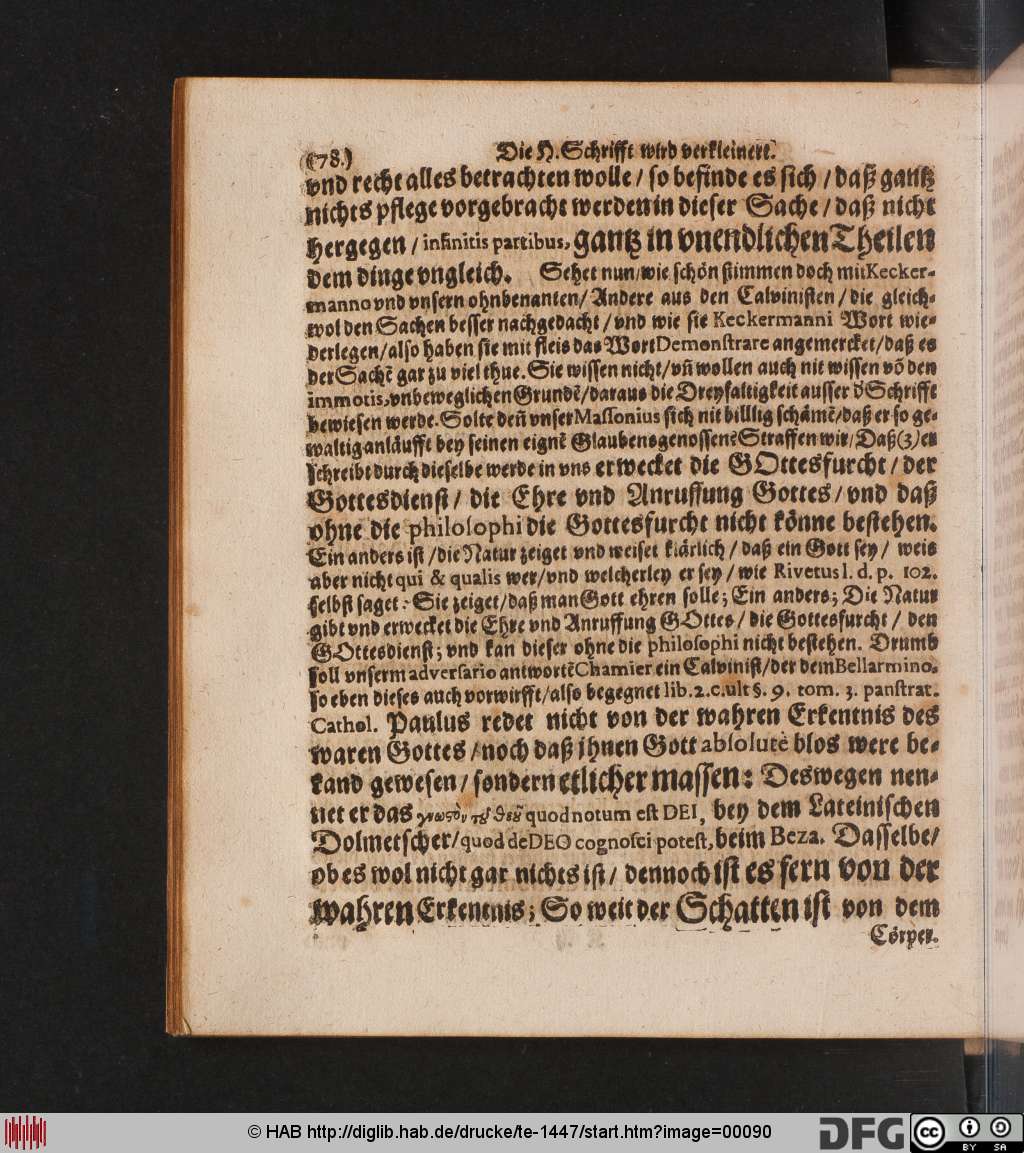 (78.) Die H. Schrifft wird verkleinert.
vnd recht alles betrachten wolle / so befinde es sich / daß gantz
nichts pflege vorgebracht werden in dieser Sache / daß nicht
hergegen / infinitis partibus, gantz in vnendlichen Theilen
dem dinge vngleich. Sehet nun / wie schön stimmen doch mit Kecker-
manno vnd vnsern ohnbenanten / Andere aus den Calvinisten / die gleich-
wol den Sachen besser nachgedacht / vnd wie sie Keckermanni Wort wie-
derlegen / also haben sie mit fleis das Wort Demonstrare angemercket / daß es
der Sachẽ gar zu viel thue. Sie wissen nicht / vñ wollen auch nit wissen võ den
immotis, vnbeweglichen Grundẽ / daraus die Dreyfaltigkeit ausser d' Schrifft
bewiesen werde. Solte deñ vnser Massonius sich nit billig schämẽ / daß er so ge-
waltig anläufft bey seinen eignẽ Glaubensgenossen? Straffen wir / Daß (3) er
schreibt durch dieselbe werde in vns erwecket die GOttesfurcht / der
Gottesdienst / die Ehre vnd Anruffung Gottes / vnd daß
ohne die philosophi die Gottesfurcht nicht könne bestehen.
Ein anders ist / die Natur zeiget vnd weiset klärlich / daß ein Gott sey / weis
aber nicht qui & qualis wer / vnd welcherley er sey / wie Rivetus l. d. p. 102.
selbst saget: Sie zeiget / daß man Gott ehren solle; Ein anders; Die Natur
gibt vnd erwecket die Ehre vnd Anruffung GOttes / die Gottesfurcht / den
GOttesdienst; vnd kan dieser ohne die philosophi nicht bestehen. Drumb
soll vnserm adversario antwortẽ Chamier ein Calvinist / der dem Bellarmino.
so eben dieses auch vorwirfft / also begegnet lib. 2. c. ult §. 9. tom. 3. panstrat.
Cathol. Paulus redet nicht von der wahren Erkentnis des
waren Gottes / noch daß ihnen Gott absolutè blos were be-
kand gewesen / sondern etlicher massen: Deswegen nen-
net er das γνωστὸν τοῦ θεοῦ quod notum est DEI, bey dem Lateinischen
Dolmetscher / quod de DEO cognosci potest, beim Beza. Dasselbe /
ob es wol nicht gar nichts ist / dennoch ist es fern von der
wahren Erkentnis; So weit der Schatten ist von dem
Cörper.
© HAB http://diglib.hab.de/drucke/te-1447/start.htm?image=00090
DFG
cc BY SA